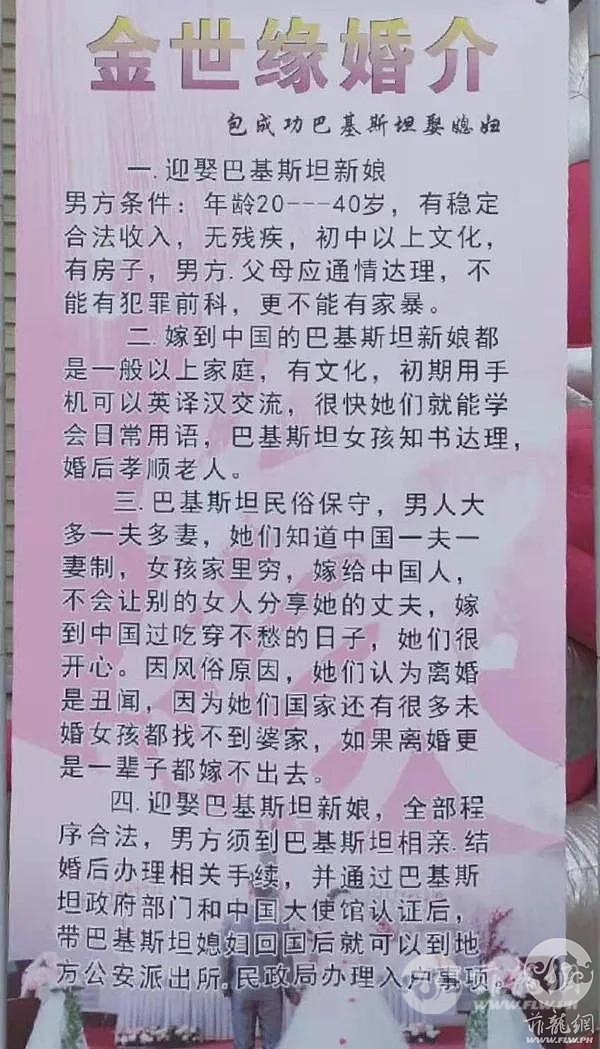 金世缘婚介
包成功巴基斯坦娶媳妇
一.迎娶巴基斯坦新娘
男方条件：年龄20---40岁，有稳定
合法收入，无残疾，初中以上文化，
有房子，男方.父母应通情达理，不
能有犯罪前科，更不能有家暴。
二.嫁到中国的巴基斯坦新娘都
是一般以上家庭，有文化，初期用手
机可以英译汉交流，很快她们就能学
会日常用语，巴基斯坦女孩知书达理，
婚后孝顺老人。
三.巴基斯坦民俗保守，男人大
多一夫多妻，她们知道中国一夫一
妻制，女孩家里穷，嫁给中国人，
不会让别的女人分享她的丈夫，嫁
到中国过吃穿不愁的日子，她们很
开心。因风俗原因，她们认为离婚
是丑闻，因为她们国家还有很多未
婚女孩都找不到婆家，如果离婚更
是一辈子都嫁不出去。
四.迎娶巴基斯坦新娘，全部程
序合法，男方须到巴基斯坦相亲.结
婚后办理相关手续，并通过巴基斯
坦政府部门和中国大使馆认证后，
带巴基斯坦媳妇回国后就可以到地
方公安派出所.民政局办理入户事项。
菲龍網
WWW.FLW.PH